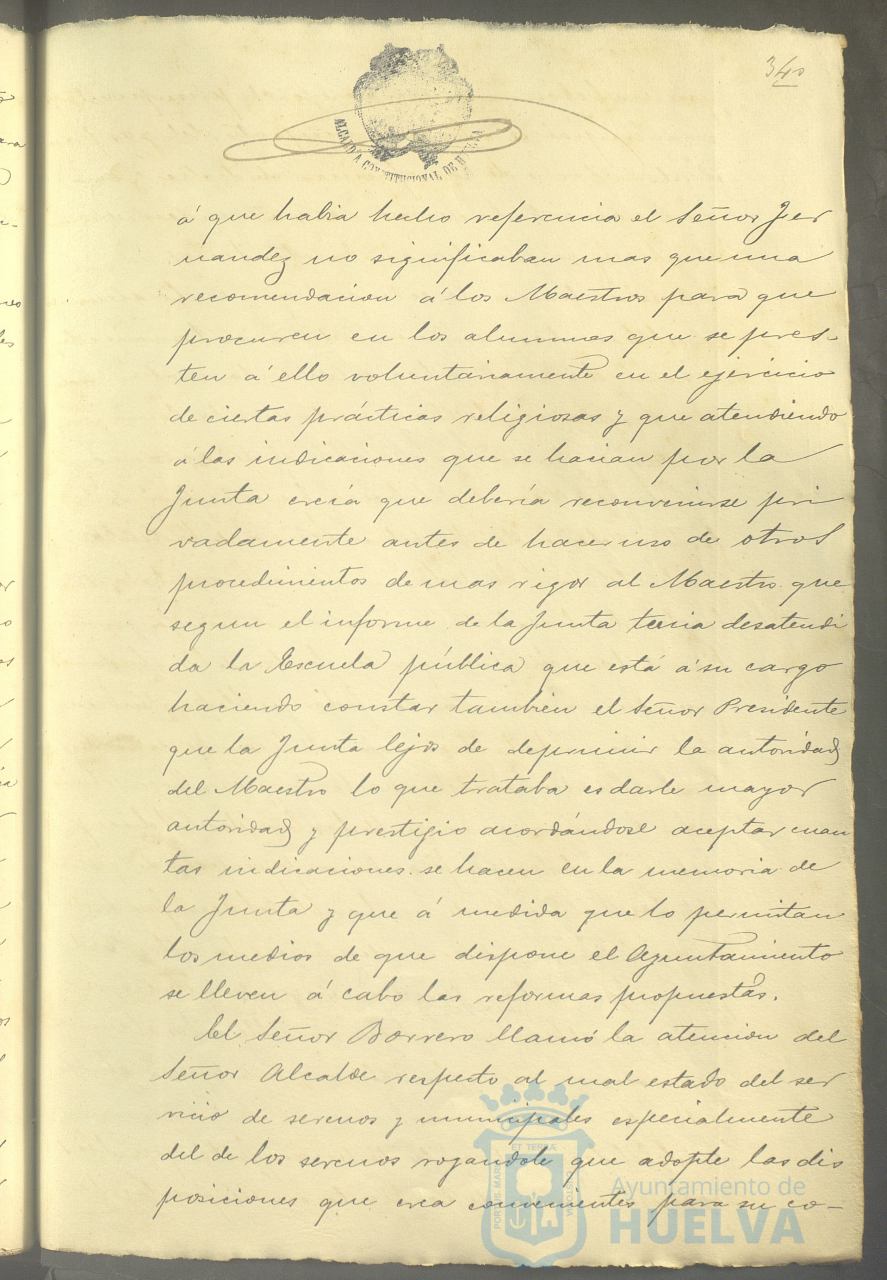 340
ALCALDÍA CONSTITUCIONAL DE HUELVA
á que habia hecho referencia el Señor Fer
nandez no significaban mas que una
recomendacion á los Maestros para que
procuren en los alumnos que se pres-
ten á ello voluntariamente en el ejercicio
de ciertas prácticas religiosas y que atendiendo
á las indicaciones que se hacian por la
Junta creía que debería reconvenirse pri
vadamente antes de hacer uso de otros
procedimientos de mas rigor al Maestro que
segun el informe de la Junta tenia desatendi
da la Escuela pública que está á su cargo
haciendo constar tambien el Señor Presidente
que la Junta lejos de deprimir la autoridad
del Maestro lo que trataba es darle mayor
autoridad y prestigio acordándose aceptar cuan
tas indicaciones se hacen en la memoria de
la Junta y que á medida que lo permitan
los medios de que dispone el Ayuntamiento
se lleven á cabo las reformas propuestas.
El Señor Borrero llamó la atencion del
Señor Alcalde respecto al mal estado del ser
vicio de serenos y municipales especialmente
del de los serenos rogandole que adopte las dis
posiciones que crea convenientes para su co-
PORTUS MARIS ET TERRÆ CUSTODIA
Ayuntamiento de
HUELVA